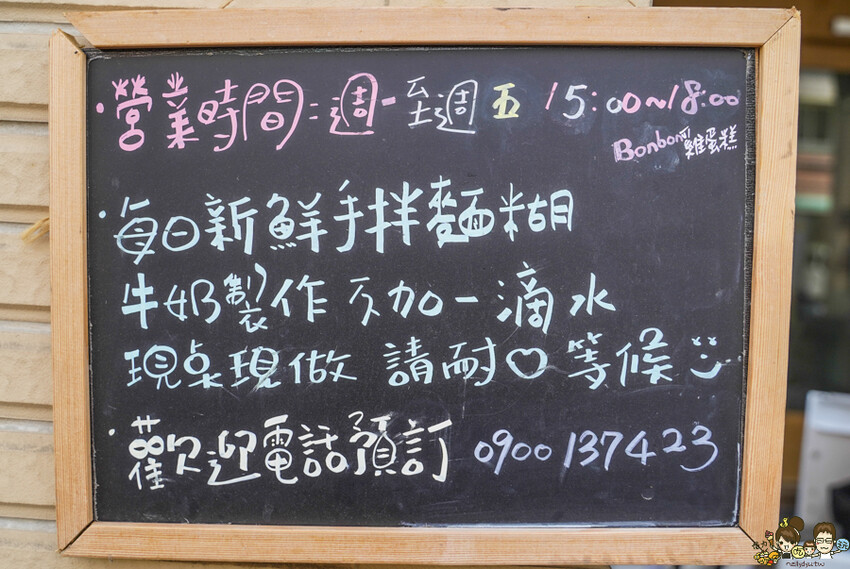 ・營業時間:週一至週五 15:00~18:00
Bonbon雞蛋糕
・每日新鮮手拌麵糊
牛奶製作 不加一滴水
現點現做 請耐♡等候
・歡迎電話預訂 0900137423
nellydyu.tw